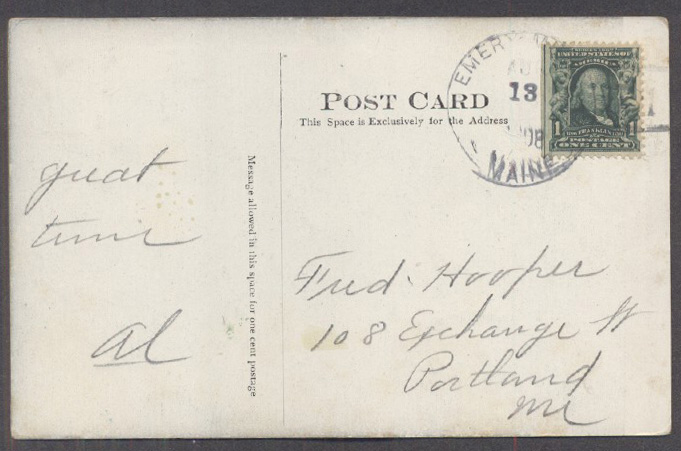 POST CARD
This Space is Exclusively for the Address
Message allowed in this space for one cent postage
AU
13
1908
MAINE
UNITED STATES OF
AMERICA
1 FRANKLIN 1
POSTAGE
ONE CENT
great
time
Al
Fred. Hooper
108 Exchange St
Portland
Me